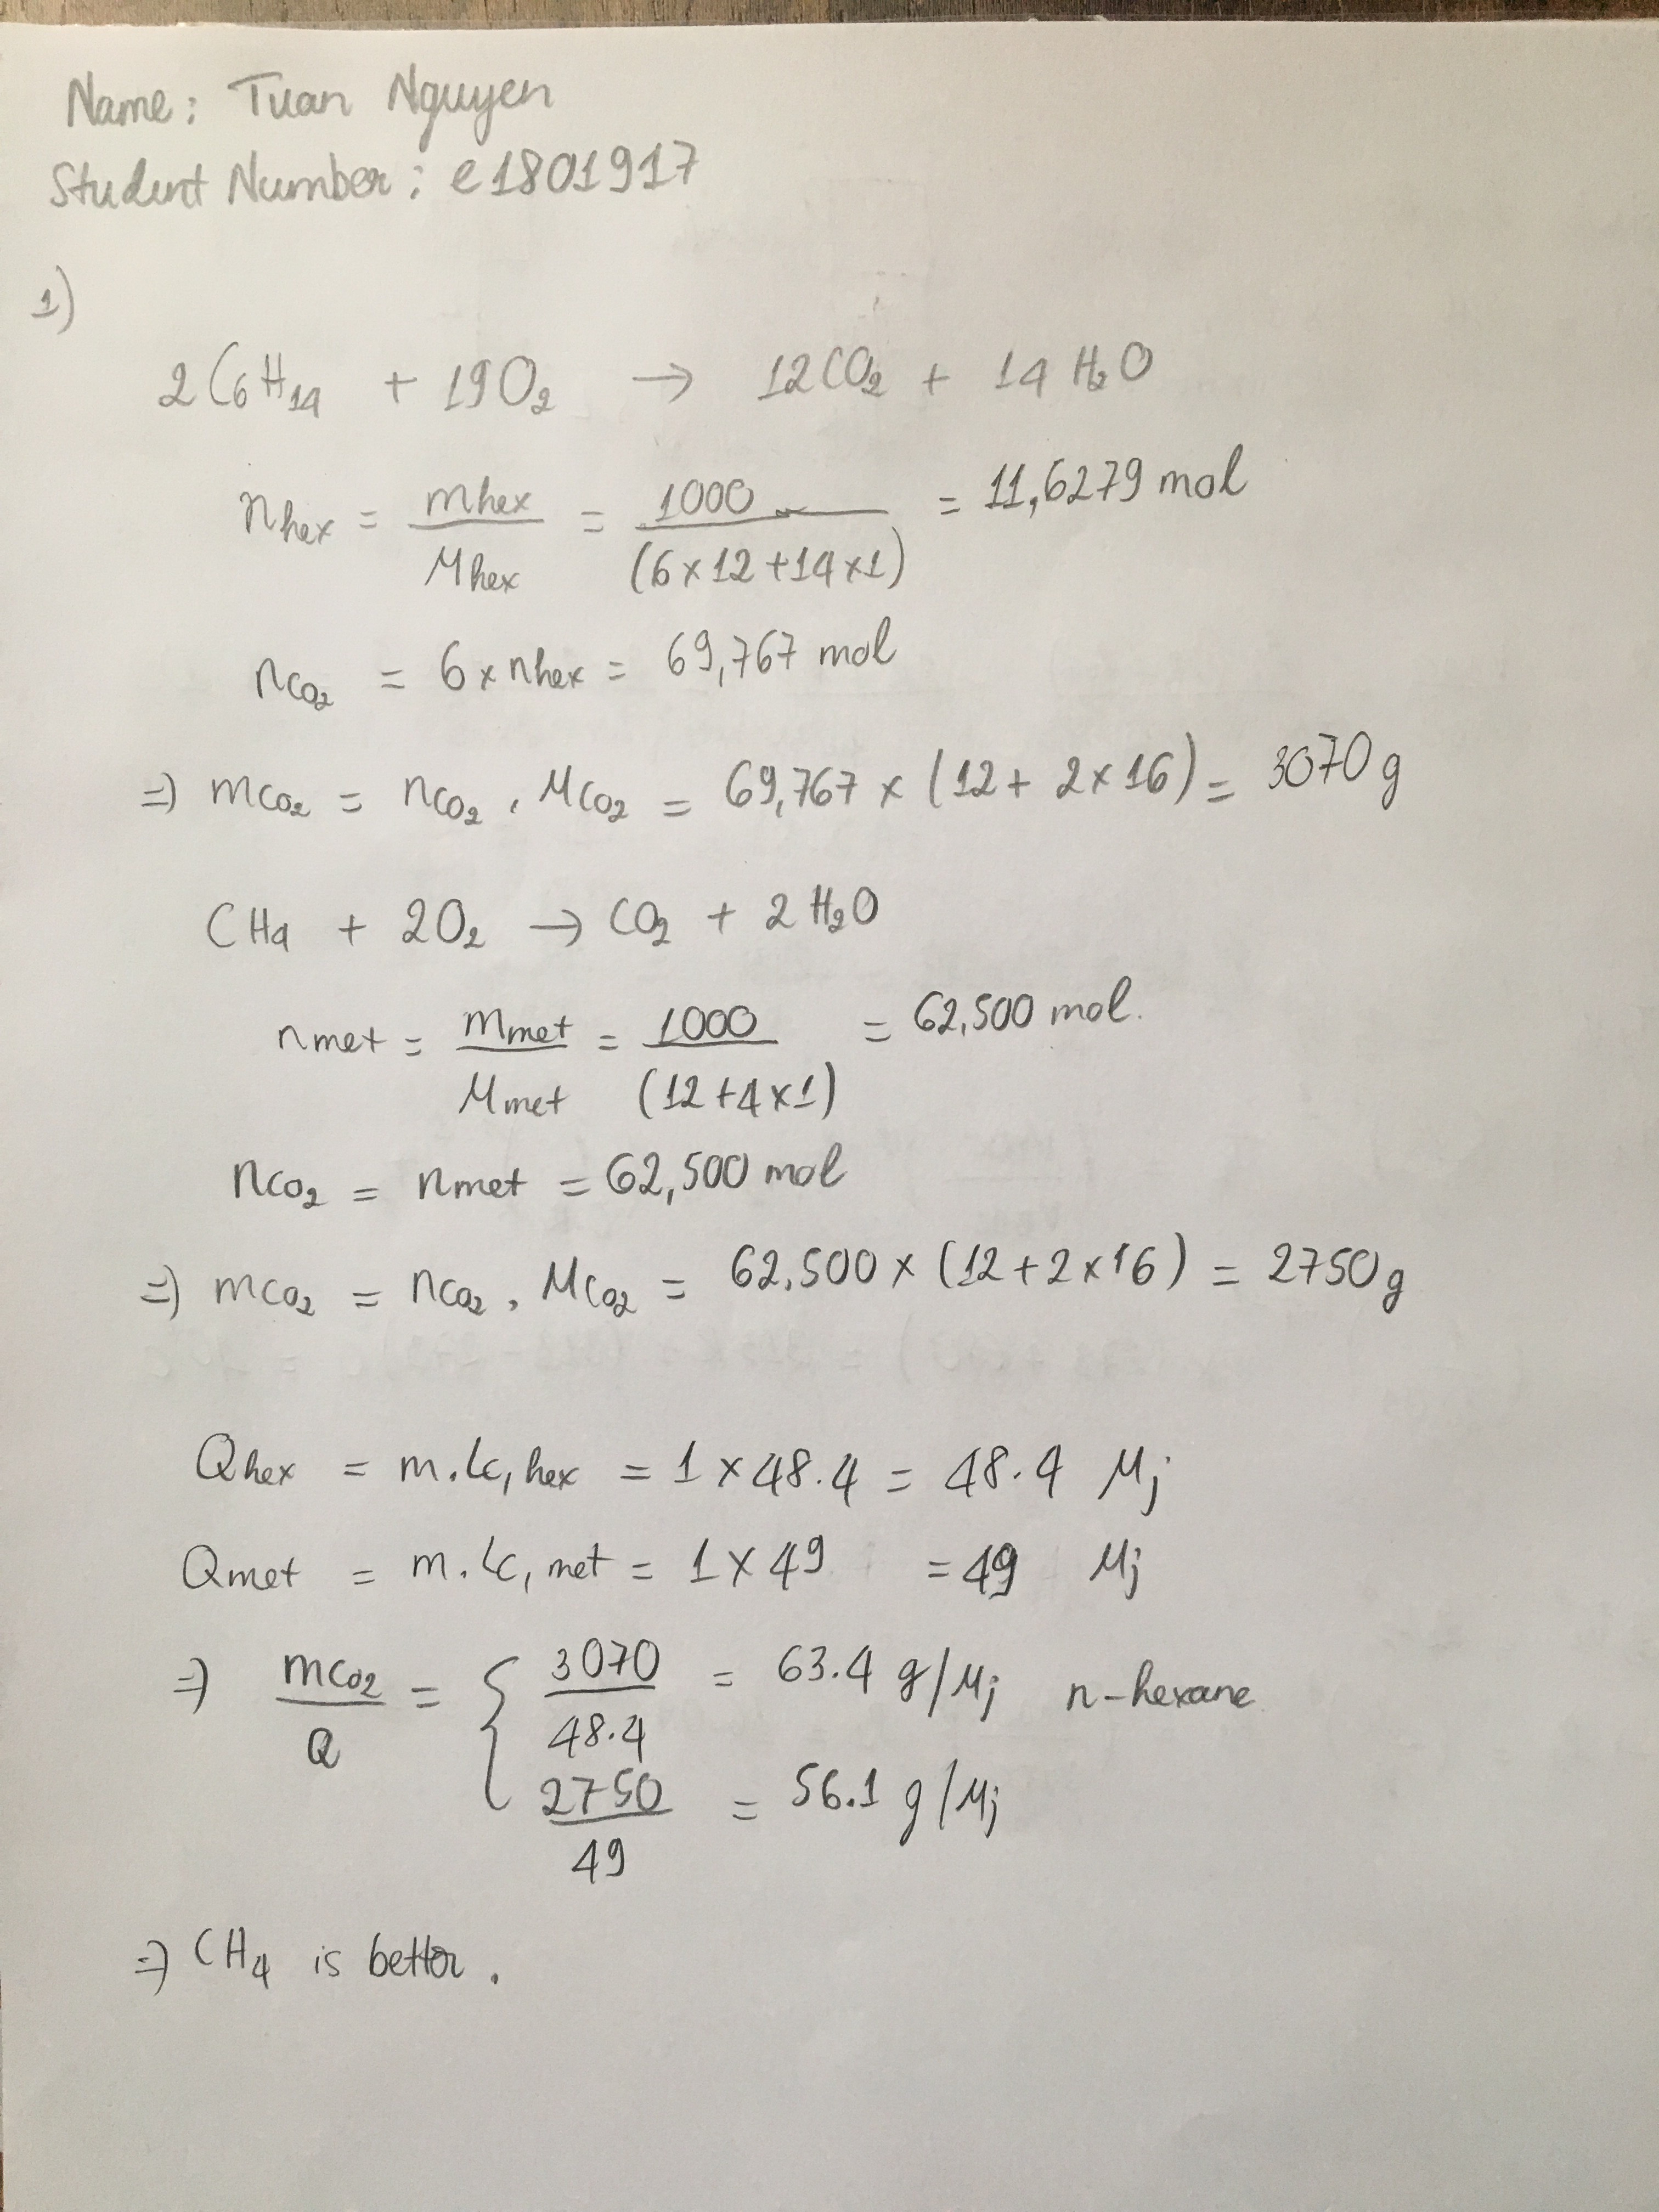 Name: Tuan Nguyen
Student Number: e1801917
1)
2C₆H₁₄ + 19O₂ → 12CO₂ + 14H₂O
nhex = mhex / Mhex = 1000 / (6×12+14×1) = 11,6279 mol
nCO₂ = 6 × nhex = 69,767 mol
=) mCO₂ = nCO₂ . MCO₂ = 69,767 × (12 + 2×16) = 3070 g
CH₄ + 2O₂ → CO₂ + 2H₂O
nmet = mmet / Mmet = 1000 / (12+4×1) = 62,500 mol.
nCO₂ = nmet = 62,500 mol
=) mCO₂ = nCO₂ . MCO₂ = 62,500 × (12+2×16) = 2750 g
Qhex = m.Lc,hex = 1 × 48.4 = 48.4 Mj
Qmet = m.Lc,met = 1 × 49 = 49 Mj
=) mCO₂ / Q = { 3070 / 48.4 = 63.4 g/Mj n-hexane
2750 / 49 = 56.1 g/Mj
=) CH₄ is better.